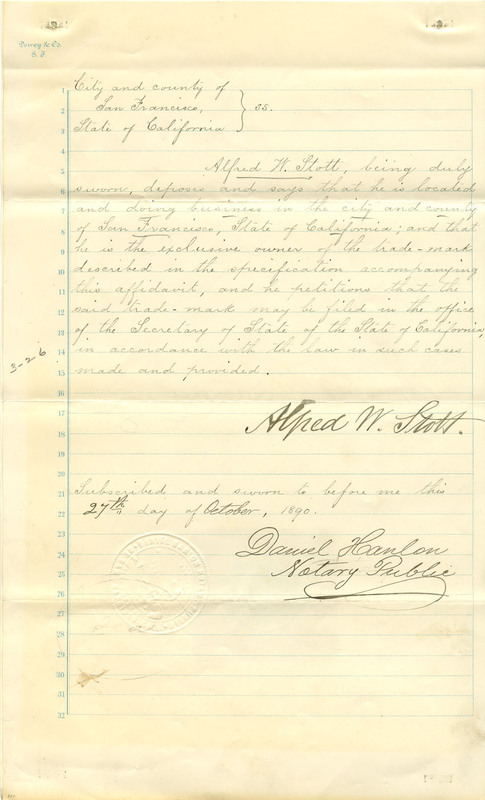 Dewey & Co.
S. F.
City and county of
San Francisco,
State of California
} ss.
Alfred W. Stott, being duly
sworn, deposes and says that he is located
and doing business in the city and county
of San Francisco, State of California; and that
he is the exclusive owner of the trade-mark
described in the specification accompanying
this affidavit, and he petitions that the
said trade-mark may be filed in the office
of the Secretary of State of the State of California,
in accordance with the law in such cases
made and provided.
3-26
Alfred W. Stott.
Subscribed and sworn to before me this
27th day of October, 1890.
Daniel Hanlon
Notary Public
1
2
3
4
5
6
7
8
9
10
11
12
13
14
15
16
17
18
19
20
21
22
23
24
25
26
27
28
29
30
31
32